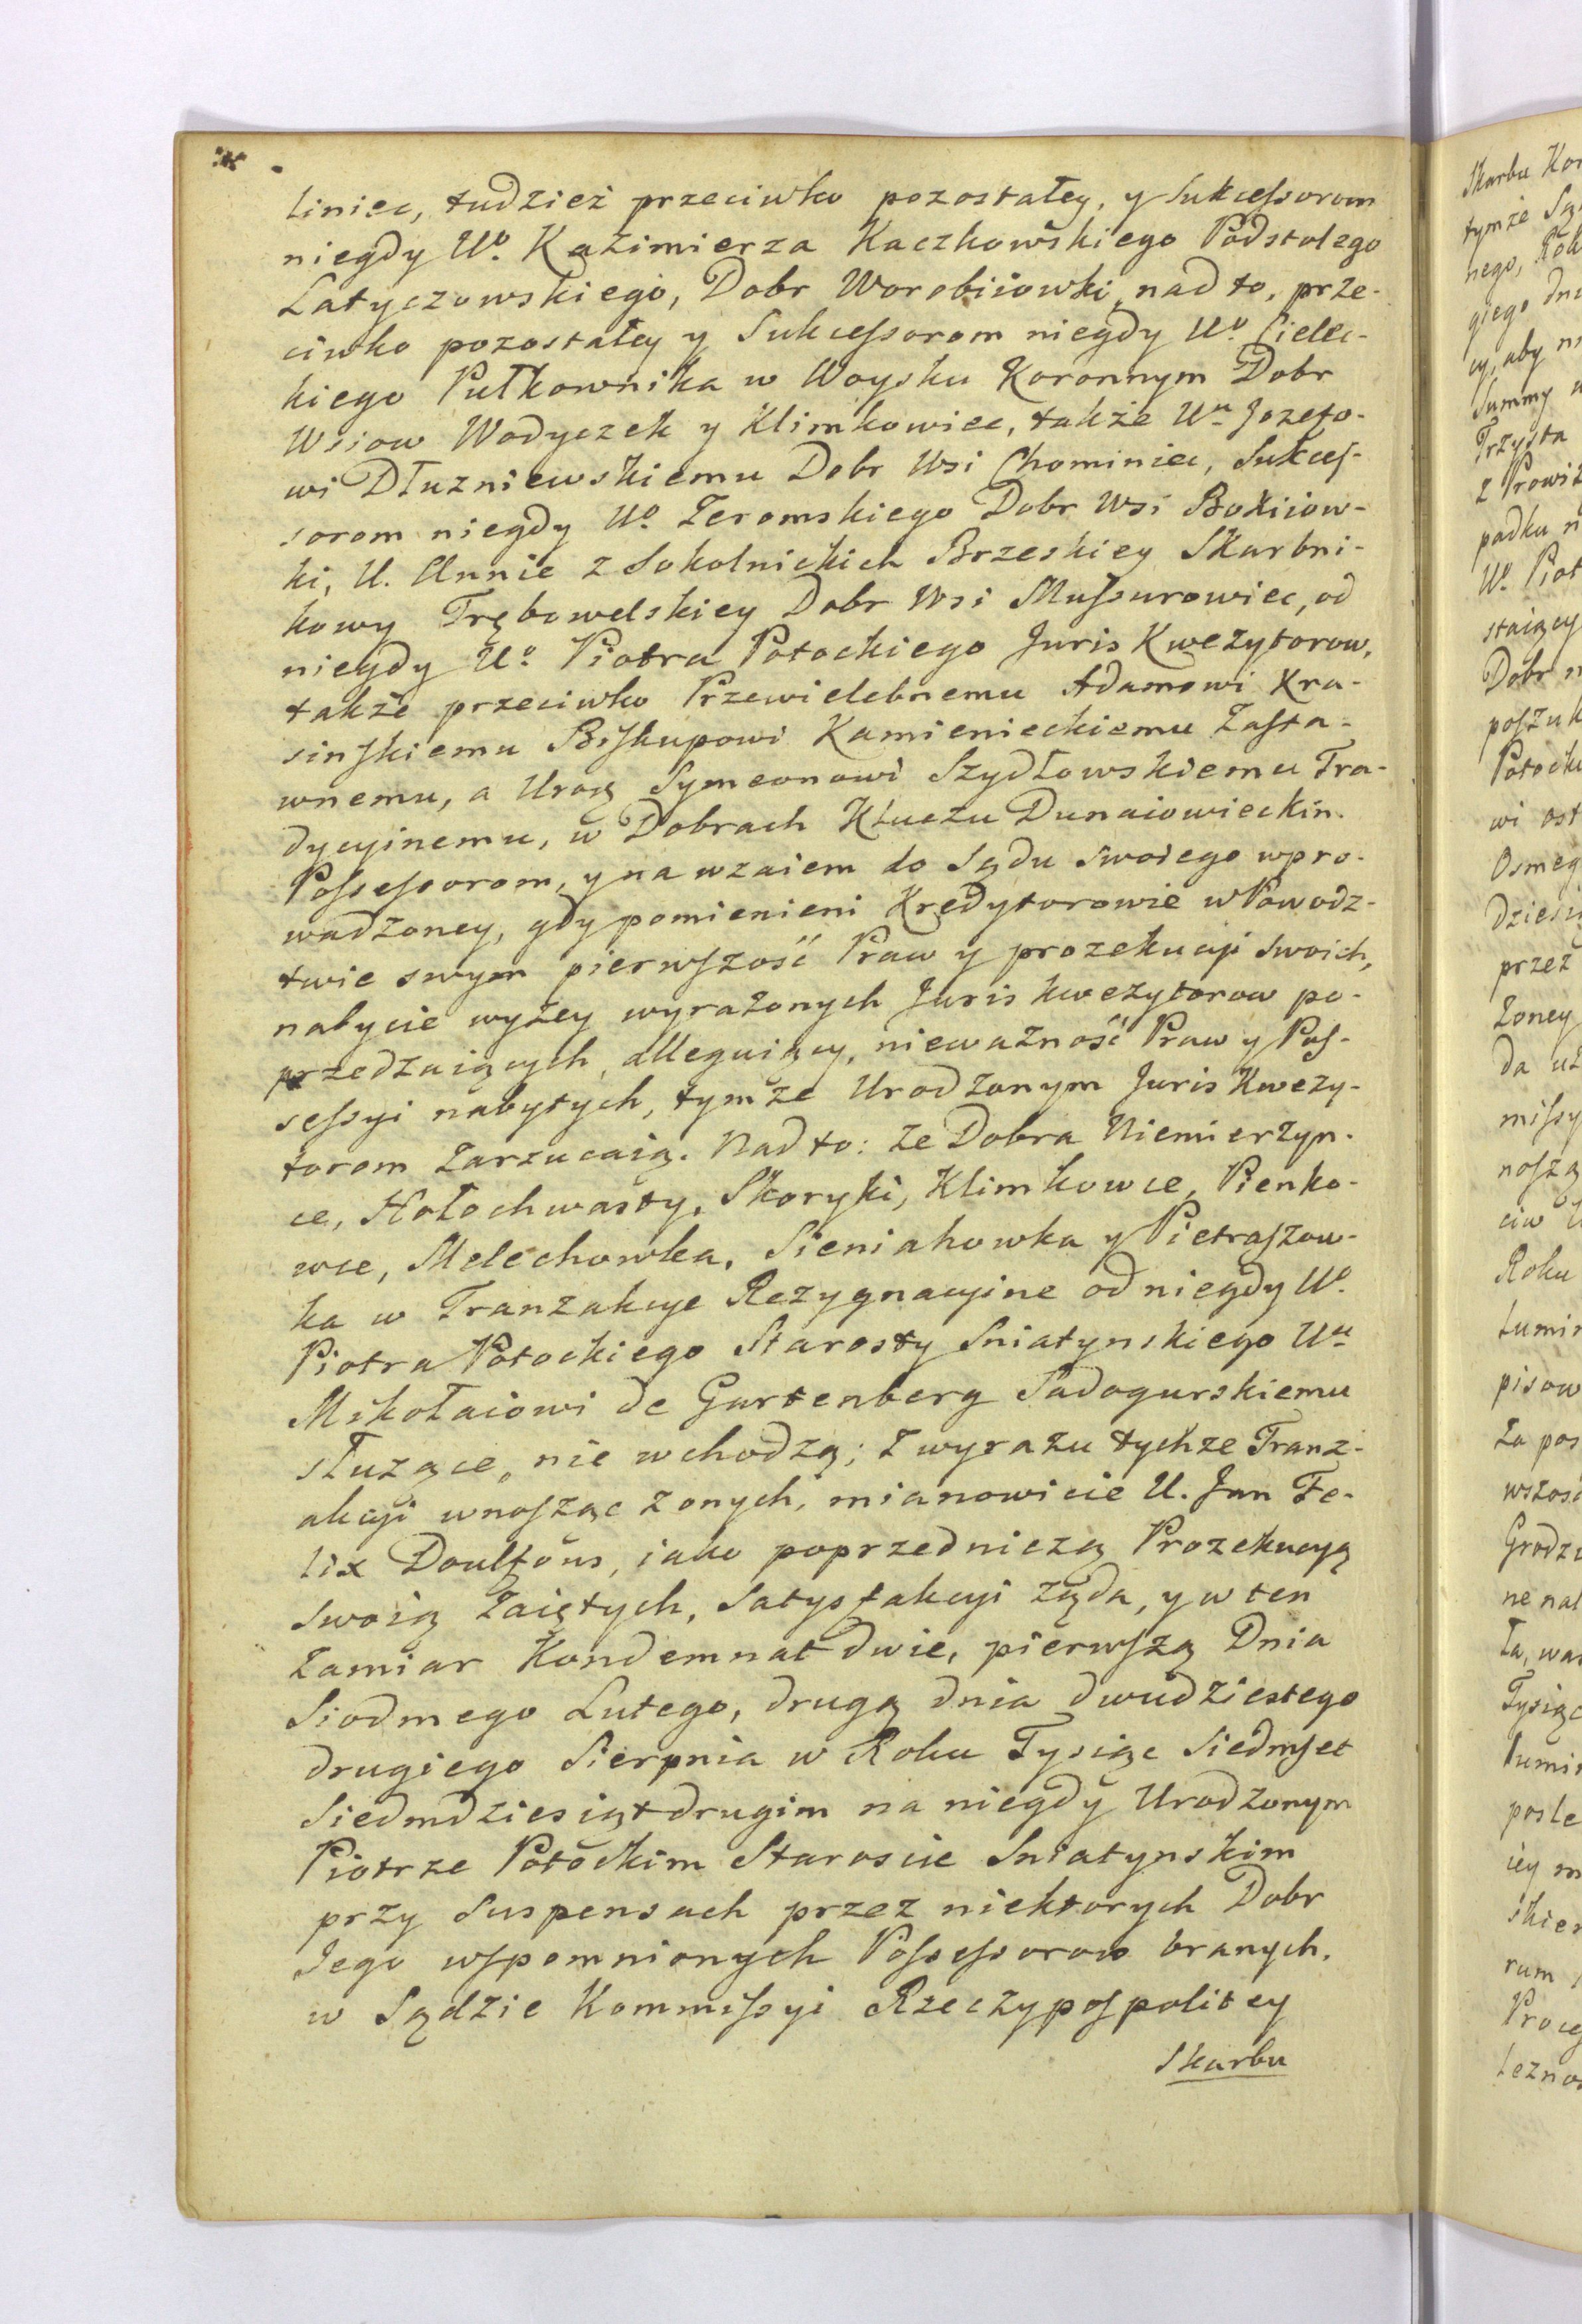 liniec, tudzież przeciwko pozostałey, y Sukcessorom
niegdy Uo. Kazimierza Kaczkowskiego Podstolego
Latyczowskiego, Dobr Worobiiowki, nad to, prze-
ciwko pozostałey y Sukcessorom niegdy Uo. Cielec-
kiego Pułkownika w Woysku Koronnym Dobr
Wsiow Wodyczek y Klimkowiec, także Uu Jozefo-
wi Dłuzniewskiemu Dobr Wsi Chominiec, Sukces-
sorom niegdy Uo Zeromskiego Dobr Wsi Boxiiow-
ki, U. Annie z Sokolnickich Brzeskiey Skarbni-
kowy Trębowelskiey Dobr Wsi Mussurowiec, od
niegdy Uo. Piotra Potockiego Juris Kwezytorow,
także przeciwko Przewielebnemu Adamowi Kra-
sinskiemu Biskupowi Kamienieckiemu Zasta-
wnemu, a Urog Symeonowi Szydłowskiemu Tra-
dycyinemu, w Dobrach Kluczu Dunaiowieckin.
Possessorom, y na wzaiem do Sądu swoiego wpro-
wadzoney, gdy pomienieni Kredytorowie w Powodz-
twie swym pierwszość Praw y prozekucyi swoich,
nabycie wyżey wyrażonych Juris kwezytorow po-
przedzaiących, alleguiący, nieważność Praw y Pos-
sessyi nabytych, tymże Urodzonym Juris Kwezy-
torom zarzucaią. Nad to: że Dobra Niemierzyn-
ce, Hołochwasty, Skoryki, Klimkowce, Pienko-
wce, Melechowka, Sieniahowka y Pietraszow-
ka w Tranzakcye Rezygnacyine od niegdy Uo.
Piotra Potockiego Starosty Sniatynskiego Uu
Mikołaiowi de Gartenberg Sadogurskiemu
służące, nie wchodzą; z wyrazu tychże Tranz-
akcyi wnosząc z onych, mianowicie U. Jan Fe-
lix Doulfous, iako poprzedniczą Prozekucyą
swoią zaiętych, satysfakcyi żąda, y w ten
zamiar Kondemnat dwie, pierwszą Dnia
Siodmego Lutego, drugą dnia dwudziestego
drugiego Sierpnia w Roku Tysiąc Siedmset
Siedmdziesiąt drugim na niegdy Urodzonym
Piotrze Potockim Staroscie Sniatynskim
przy Suspensach przez niektorych Dobr
Jego wspomnionych Possessorow branych,
w Sądzie Kommissyi Rzeczypospolitey
Skarbu